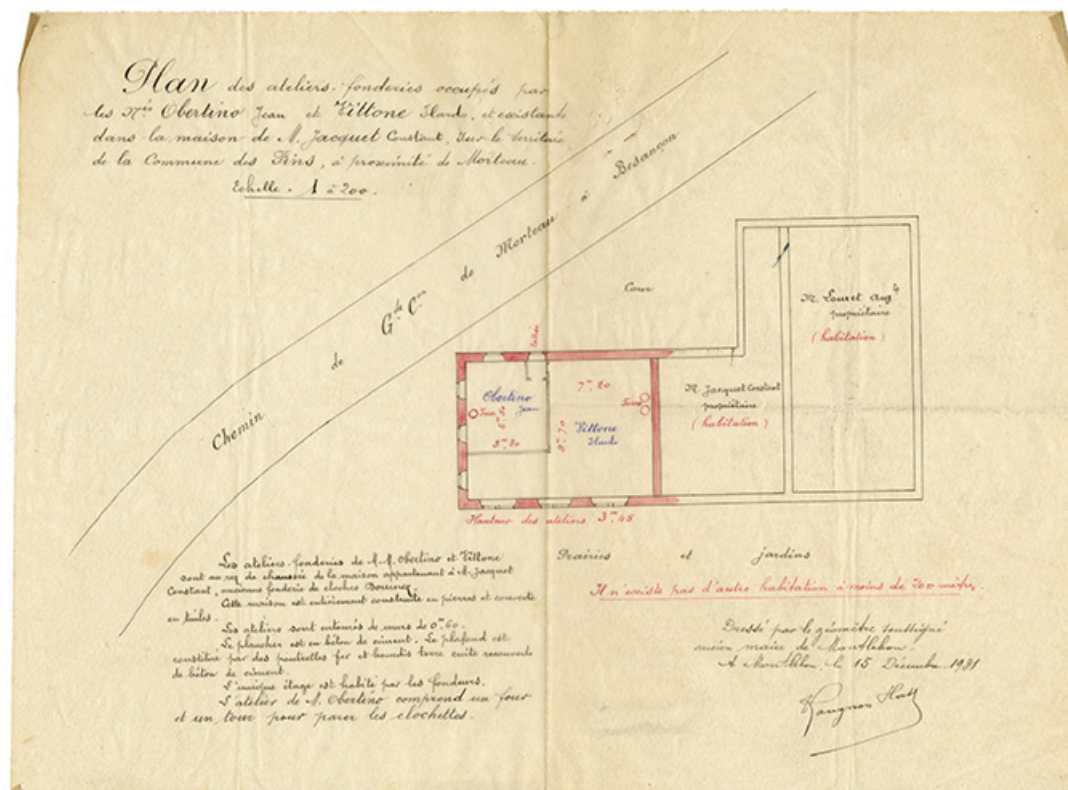 Plan des ateliers-fonderies occupés par
les Mrs Obertino Jean et Vittone, et existants
dans la maison de M. Jacquet Constant, sur le territoire
de la Commune des Fins, à proximité de Morteau.
Echelle - 1 à 200.
Chemin de Gde Con de Morteau à Besançon
Cour
Entrée
M. Louvet Aug
propriétaire
(habitation)
M. Jacquet Constant
propriétaire
(habitation)
Obertino
Jean
Four
5m.20
7m.20
9m.70
Vittone
Four
Hauteur des ateliers 3m.45
Prairies et jardins
Il n'existe pas d'autre habitation à moins de 200 mètres.
Les ateliers-fonderies de M.M. Obertino et Vittone
sont au rez de chaussée de la maison appartenant à M. Jacquet
Constant, ancienne fonderie de cloches
Cette maison est entièrement construite en pierres et couverte
en tuiles.
Les ateliers sont entourés de murs de 0m.60.
Le plancher est en béton de ciment. Le plafond est
constitué par des poutrelles fer et hourdis terre cuite recouverts
de béton de ciment.
L'unique étage est habité par les fondeurs.
L'atelier de M. Obertino comprend un four
et un tour pour parer les clochettes.
Dressé par le géomètre soussigné
ancien maire de Montlebon.
A Montlebon, le 15 Décembre 1931